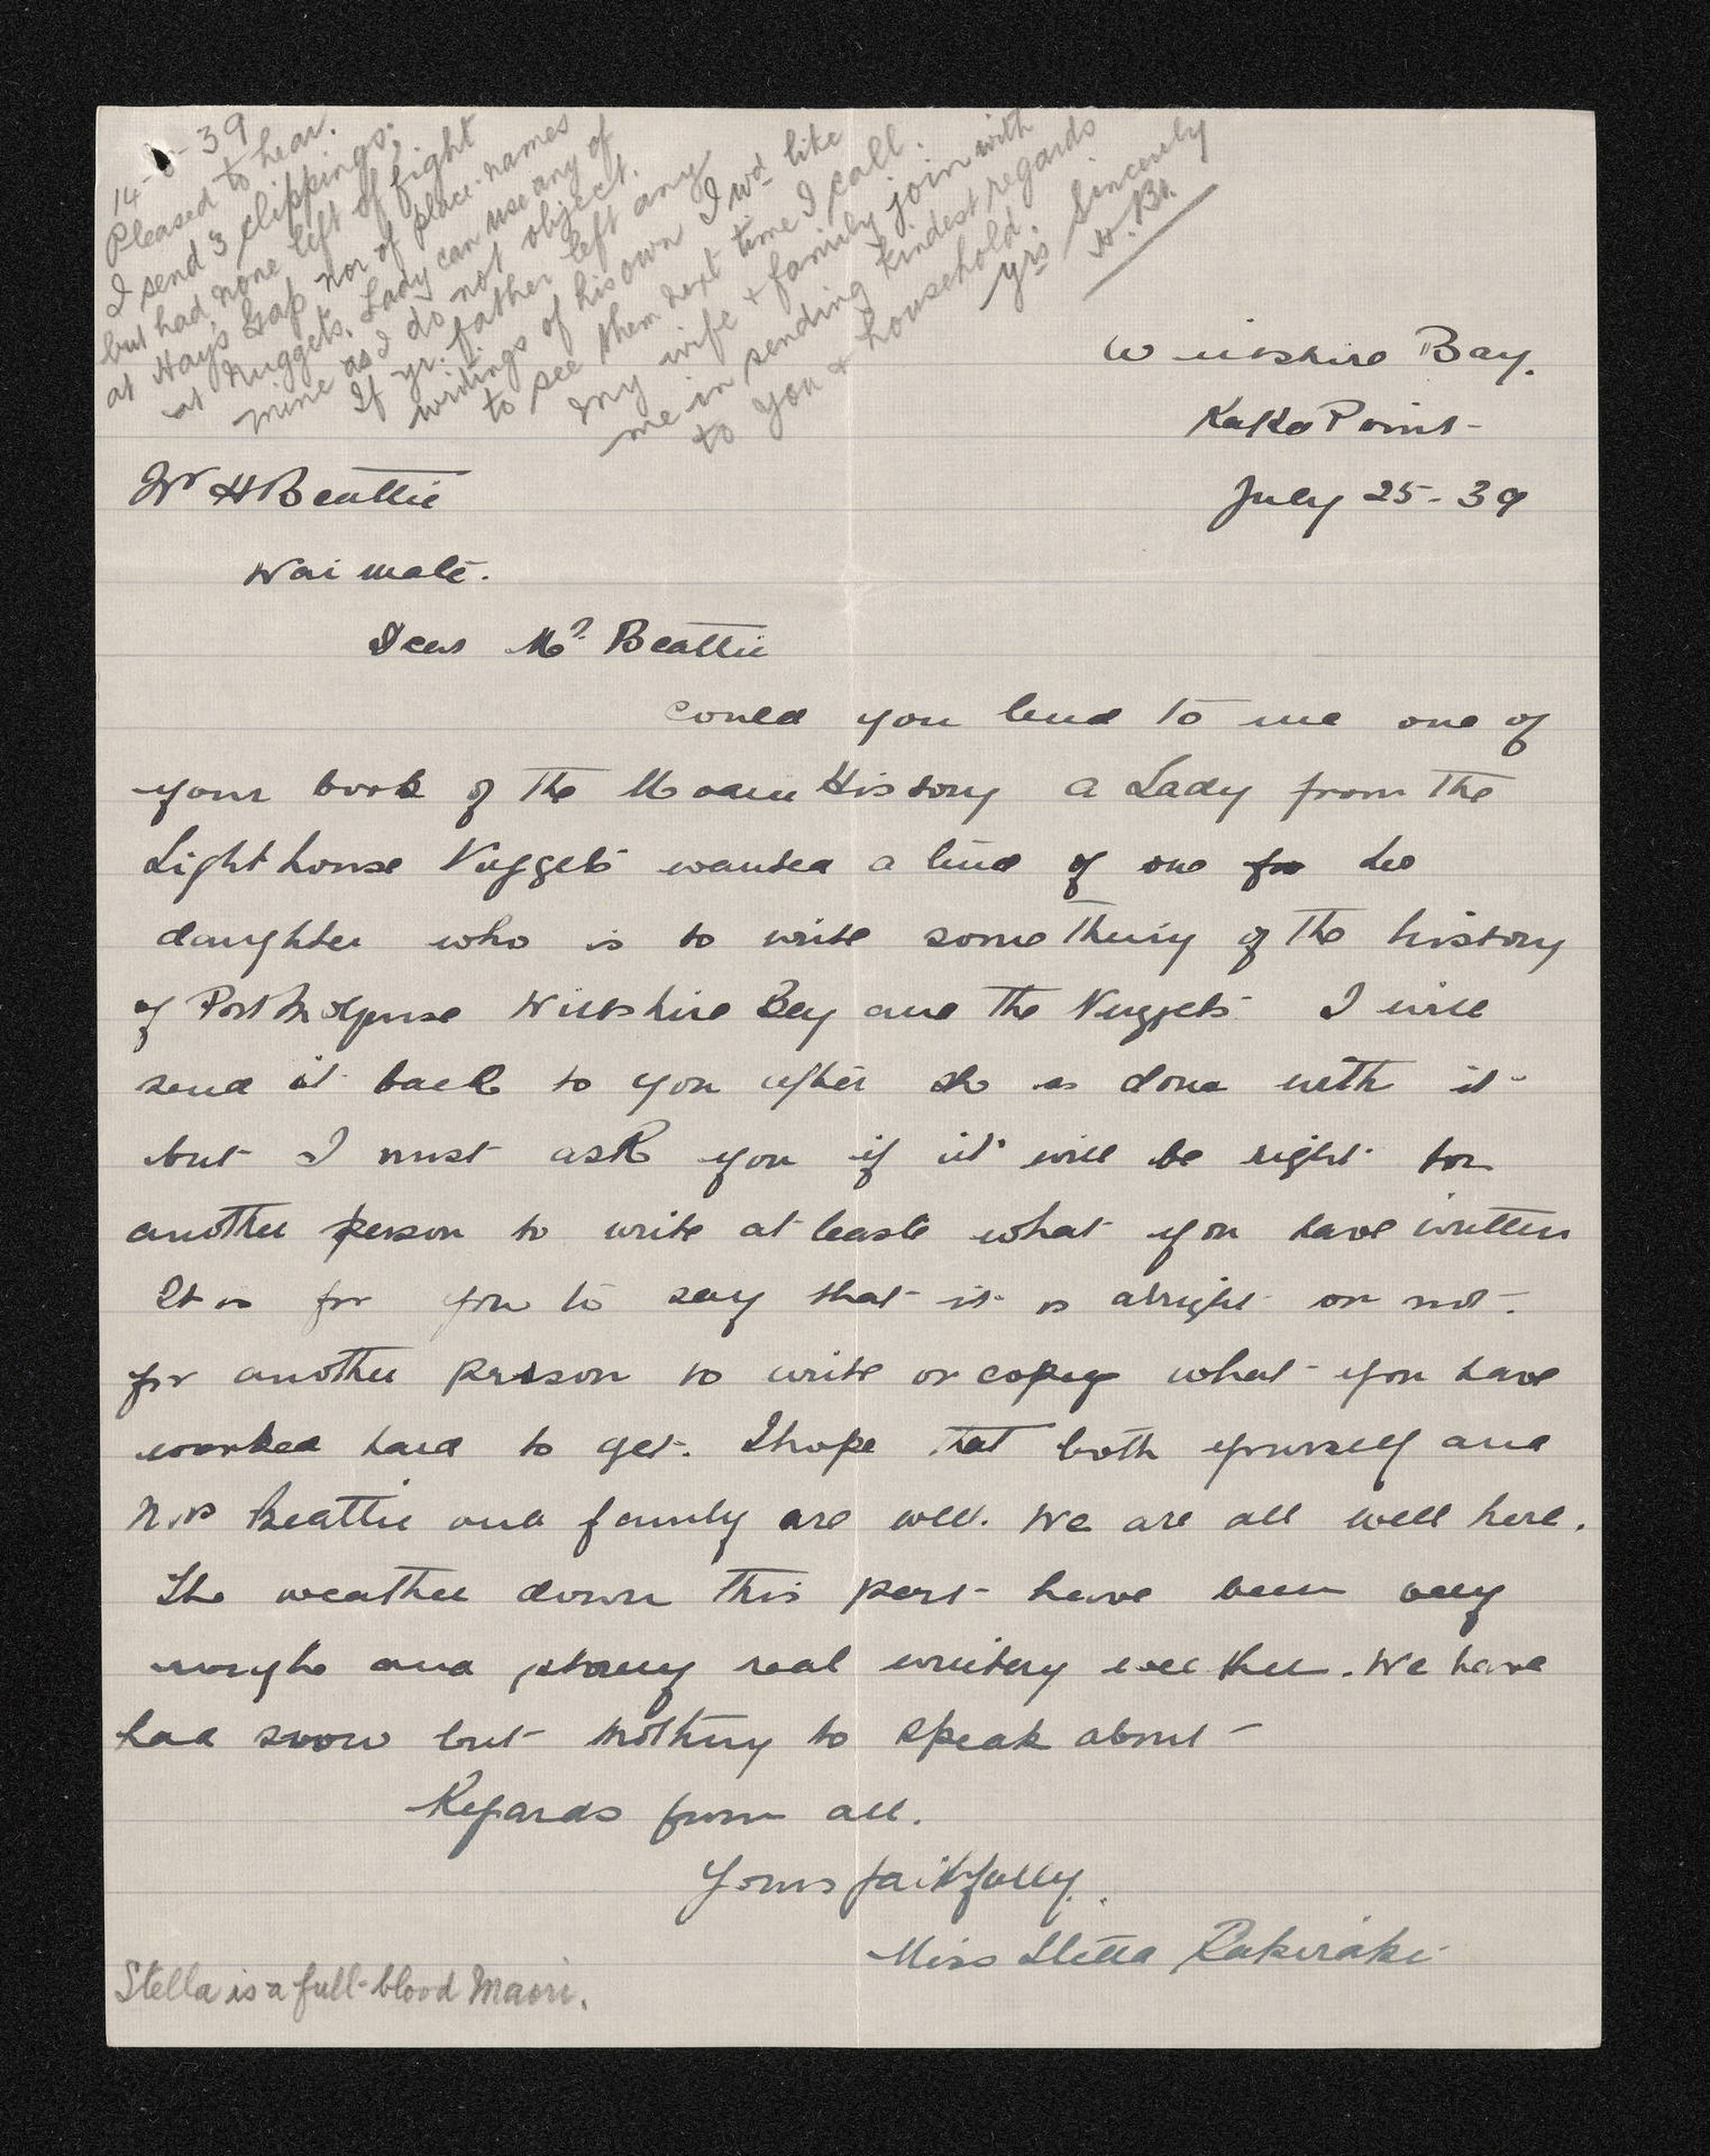 14-8-39
Pleased to hear.
I send 3 clippings;
but had none left of fight
at Hay's Gap nor of place-names
at Nuggets. Lady can use any of
mine as I do not object.
If yr. father left any
writings of his own I wd like
to see them next time I call.
My wife & family join with
me in sending kindest regards
to you & household.
yrs Sincerely
H. Bt.
Wiltshire Bay.
Kaka Point
July 25-39
Mr H Beattie
Waimate.
Dear Mr Beattie
Could you lend to me one of
your book of the Moarie History a Lady from the
Lighthouse Nuggets wanted a lind of one for her
daughter who is to write something of the history
of Port Molyneux Wiltshire Bay and the Nuggets I will
send it back to you after she is done with it
but I must ask you if it will be right for
another person to write at leaste what you have written
It is for you to say that it is alright or not.
for another person to write or copy what you have
worked hard to get. I hope that both yourself and
Mrs Beattie and family are well. We are all well here.
The weather down this part have been very
rough and stormy real wintery weather. We have
had snow but nothing to speak about
Regards from all.
Yours faithfully.
Miss Stella Rakiraki
Stella is a full-blood Maori.